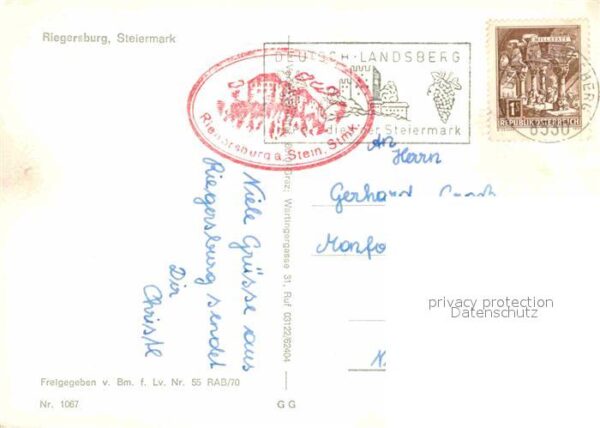 Riegersburg, Steiermark
DEUTSCH-LANDSBERG
Steiermark
Riegersburg a. Stein, Stmk.
MILLSTATT
REPUBLIK ÖSTERREICH
An
Herrn
Gerhard
Viele Grüsse aus
Riegersburg sendet
Dir
Christl
Graz, Wartingergasse 31, Ruf 03122/62404
privacy protection
Datenschutz
Freigegeben v. Bm. f. Lv. Nr. 55 RAB/70
Nr. 1067
G G